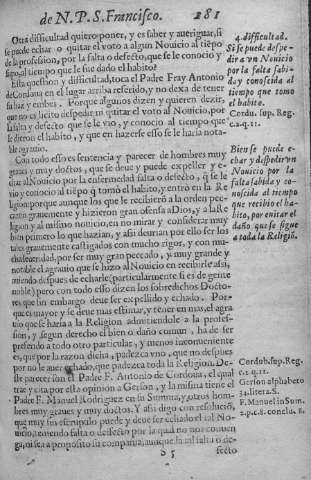 de N. P. S. Francisco. 281
Otra difficultad quiero poner, y es saber y aueriguar, si
se puede echar o quitar el voto a algun Nouicio al tiẽpo
de la profession, por la falta o defecto, que se le conocio y
supo, al tiempo que le fue dado el habito?
Esta question y difficultad, toca el Padre Fray Antonio
de Corduua en el lugar arriba referido, y no dexa de tener
sabaz y embes. Porque algunos dizen y quieren dezir,
que no es licito despedir ni quitar el voto al Nouicio, por
falta y defecto que se le vio, y conocio al tiempo que
le dieron el habito, y que en hazerse esso se le haria nota-
ble agrauio.
Con todo esso es sentencia y parecer de hombres muy
graues y muy doctos, que se deue y puede expeller y e-
char al Nouicio por la enfermedad falta o defecto, q̃ se le
vio y conocio al tiempo q̃ tomò el habito, y entrò en la Re
ligion: porque aunque los que le recibieró a la orden pec-
carón grauemente y hizieron gran ofensa a Dios, y a la Re
ligion y al mismo nouicio, en no mirar y considerar muy
bien primero lo que hazian, y assi deurian por ello ser los
tales grauemente castigados con mucho rigor, y con mu-
cha seueridad, por ser muy gran peccado, y muy grande y
notable el agrauio que se hizo al Nouicio en recibirle assi,
auiendo despues de echarle (particularmente si es de gente
noble) pero con todo esso dizen los sobredichos Docto-
res que sin embargo deue ser expellido y echado. Por-
que es mayor y se deue mas estimar, y tener en mas, el agra
uio que se haria a la Religion admitiendole a la profes-
sion, y segun derecho el bien o daño comun, ha de ser
preferido a todo otro particular, y menos inconueniente
es, que por la razon dicha, padezca vno, que no despues
por no le auer echado, que padezca toda la Religion. De-
ste parecer son el Padre F. Antonio de Cordoua, el qual
trae y cita por esta opinion a Gerson, y la misma tiene el
Padre F. Manuel Rodriguez en su Summa, y otros hom-
bres muy graues y muy doctos. Y assi digo con resolució,
que muy sin escrupulo puede y deue ser echado el tal No-
uicio, teniendo falta o defecto por la qual no nos conuen
ga, ni sea a proposito su compañia, aunque la tal falta o de-
S 5 fecto
4. difficultad.
Si se puede despe-
dir a vn Nouicio
por la falta sabi-
da y conocida al
tiempo que tomo
el habito.
Cordu. sup. Reg.
c. 2. q. 11.
Bien se puede e-
char y despedir vn
Nouicio por la
falta sabida y co-
nocida al tiempo
que recibio el ha-
bito, por euitar el
daño que se sigue
a toda la Religió.
Cordub. sup. Reg.
c. 2. q. 11.
Gerson alphabeto
34. litera S.
F. Manuel in Sum.
2. p. c. 8. conclu. 8.